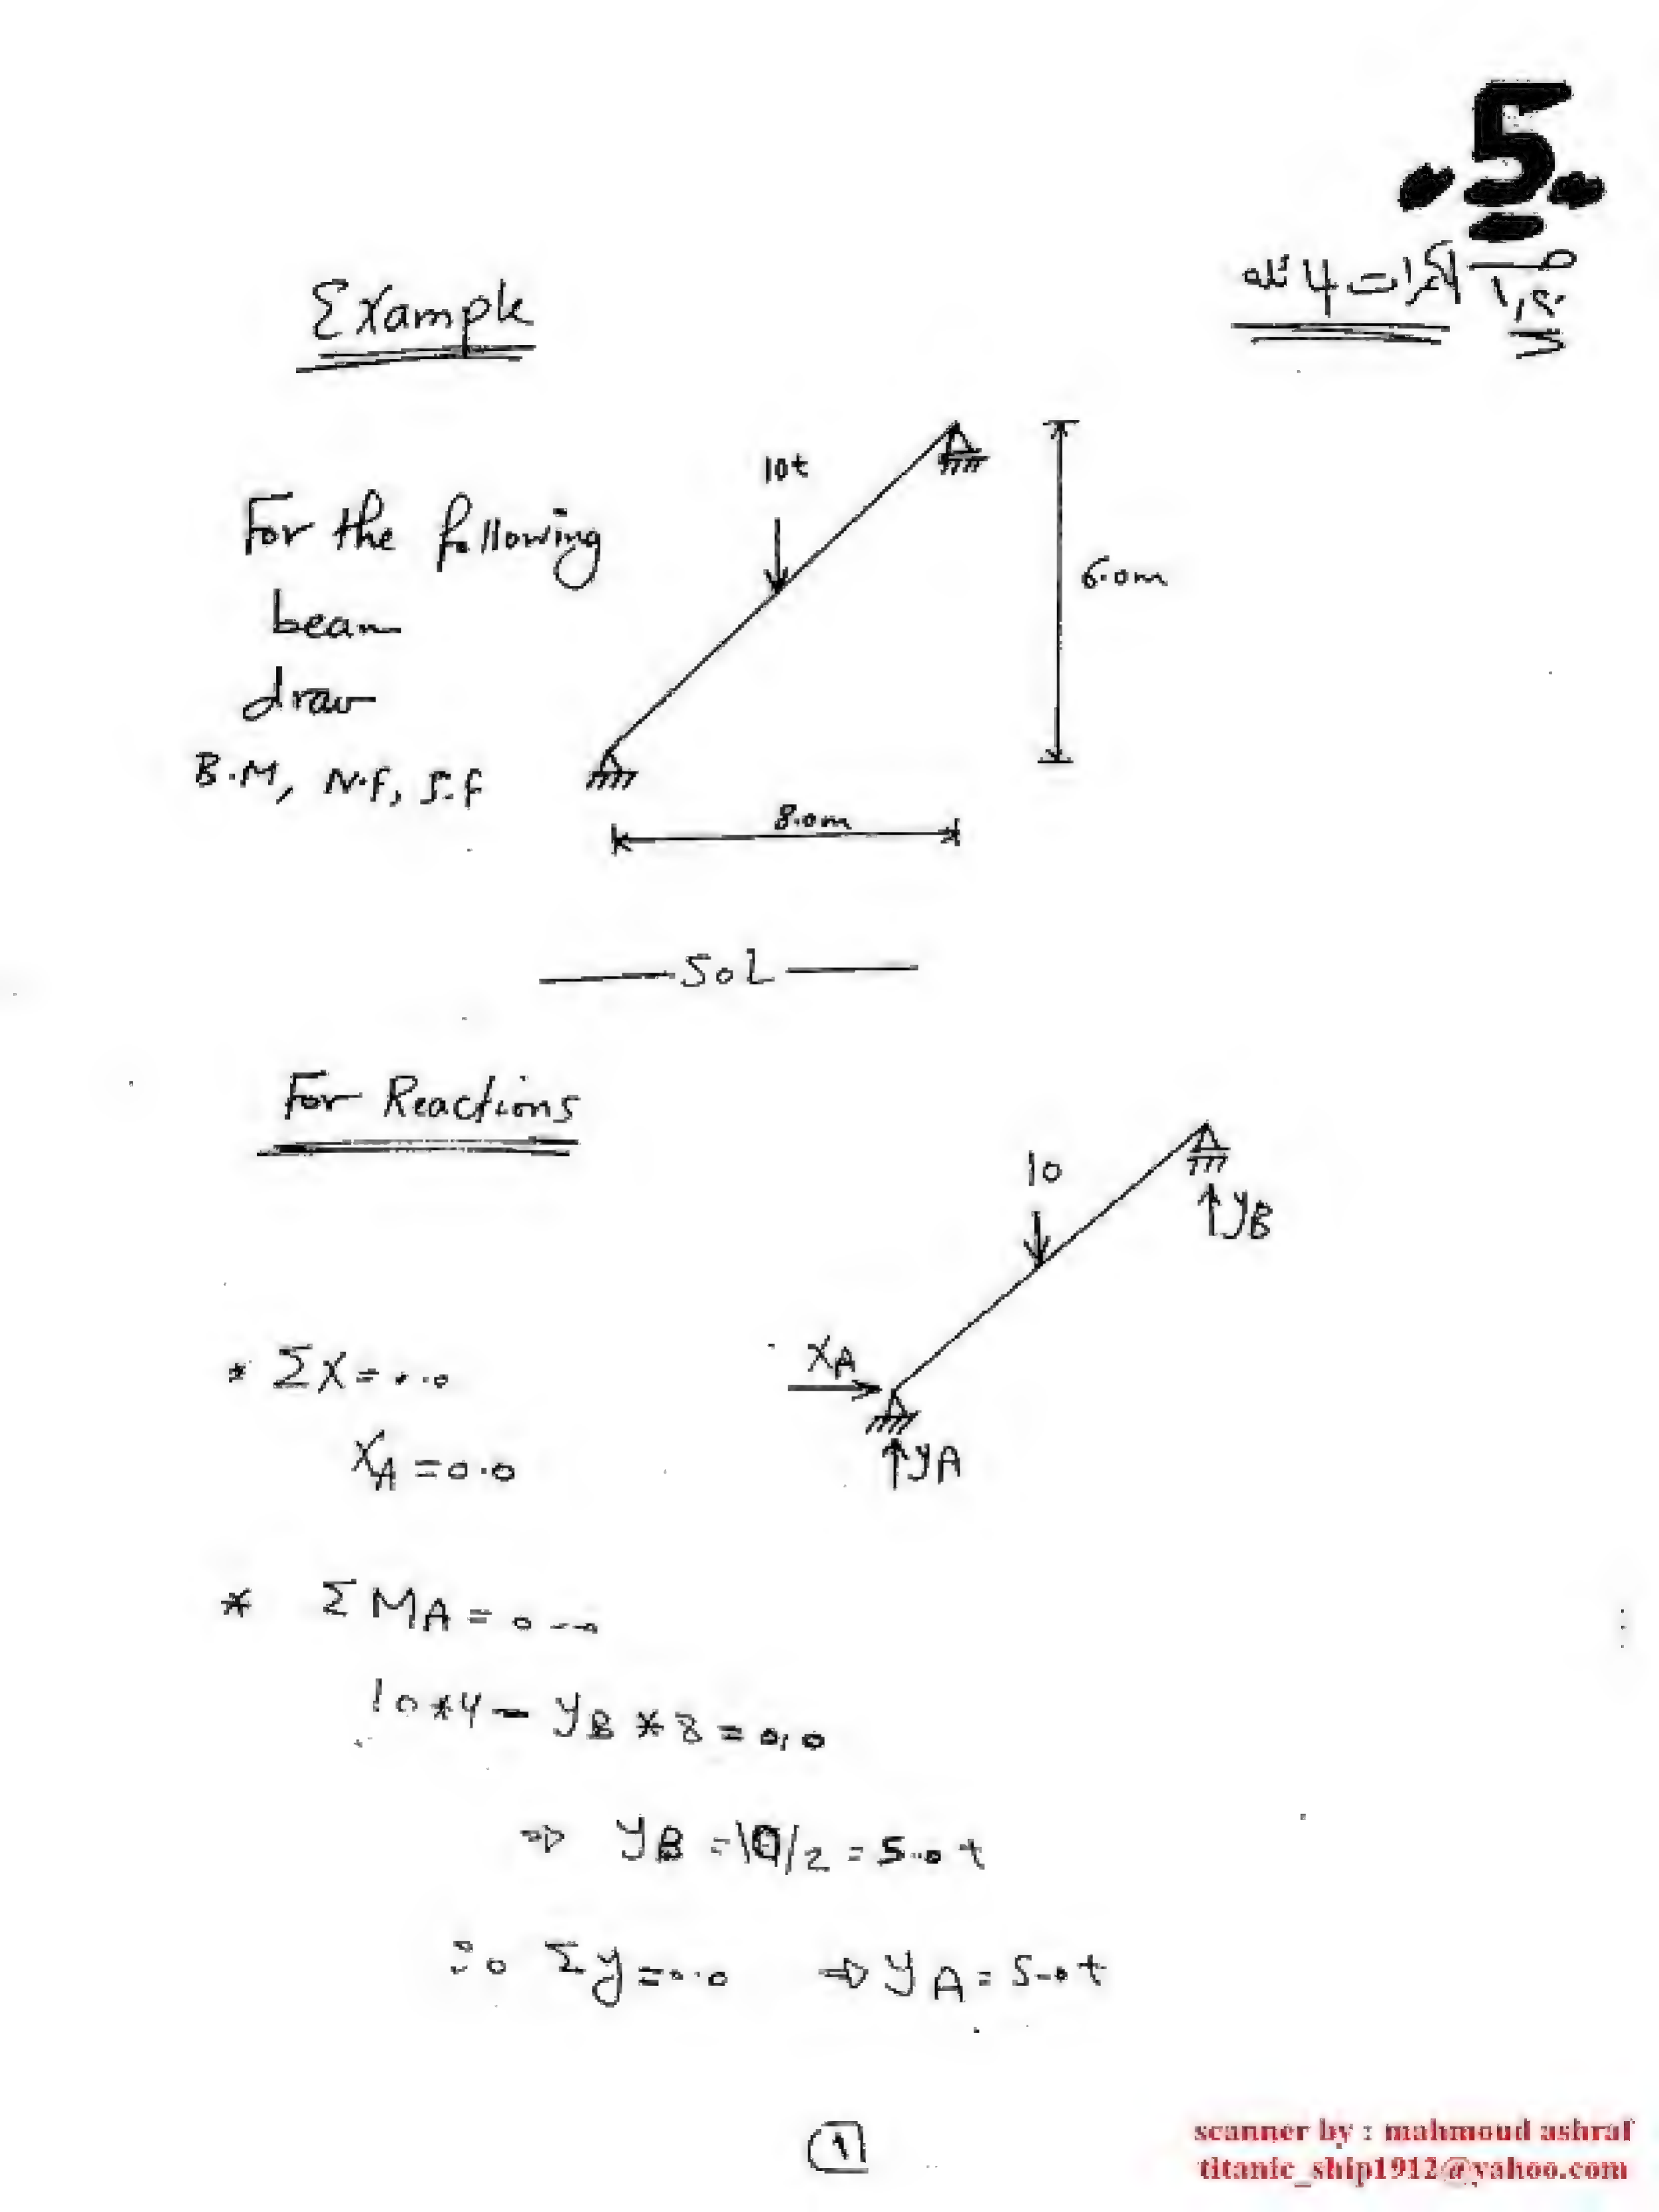 .5.
Example
For the following
beam
draw
B.M, N.F, S.F
10t
6.0m
8.0m
SOL
For Reactions
10
yB
XA
yA
* ΣX=0.0
XA=0.0
* ΣMA=0.0
10*4-yB*8=0.0
⇒ yB=10/2=5.0t
∴ Σy=0.0 ⇒ yA=5.0t
1
scanner by : mahmoud ashraf
titanic_ship1912@yahoo.com